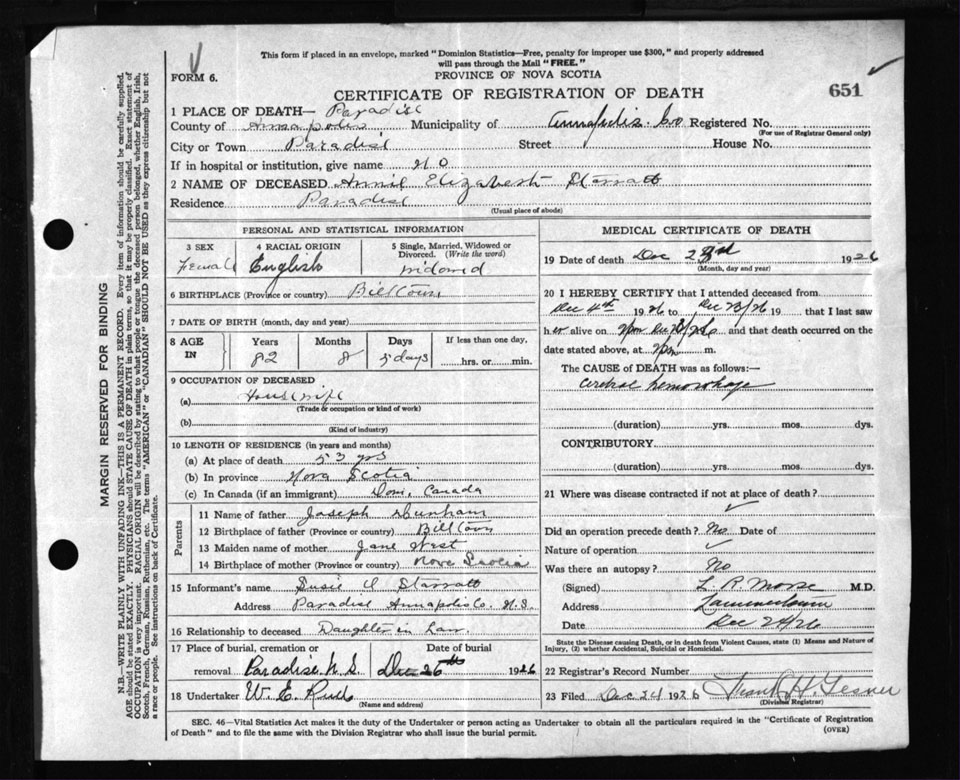 This form if placed in an envelope, marked "Dominion Statistics—Free, penalty for improper use $300," and properly addressed
will pass through the Mail "FREE."
FORM 6.
PROVINCE OF NOVA SCOTIA
CERTIFICATE OF REGISTRATION OF DEATH
651
1 PLACE OF DEATH— Paradise
County of Annapolis Municipality of Annapolis Co Registered No.
(For use of Registrar General only)
City or Town Paradise Street House No.
If in hospital or institution, give name NO
2 NAME OF DECEASED Annie Elizabeth Starratt
Residence Paradise
(Usual place of abode)
PERSONAL AND STATISTICAL INFORMATION
3 SEX 4 RACIAL ORIGIN 5 Single, Married, Widowed or
Divorced. (Write the word)
Female English widowed
6 BIRTHPLACE (Province or country) Billtown
7 DATE OF BIRTH (month, day and year)
8 AGE IN Years Months Days If less than one day,
82 8 5 days hrs. or min.
9 OCCUPATION OF DECEASED
(a) Housewife
(Trade or occupation or kind of work)
(b)
(Kind of industry)
10 LENGTH OF RESIDENCE (in years and months)
(a) At place of death 53 yrs
(b) In province Nova Scotia
(c) In Canada (if an immigrant) Dom. Canada
Parents
11 Name of father Joseph Dunham
12 Birthplace of father (Province or country) Billtown
13 Maiden name of mother Jane West
14 Birthplace of mother (Province or country) Nova Scotia
15 Informant's name Susie Starratt
Address Paradise Annapolis Co. N.S.
16 Relationship to deceased Daughter in Law
17 Place of burial, cremation or Date of burial
removal Paradise N.S. Dec 26th 1926
18 Undertaker W. E.
(Name and address)
MEDICAL CERTIFICATE OF DEATH
19 Date of death Dec 23rd 1926
(Month, day and year)
20 I HEREBY CERTIFY that I attended deceased from
Dec 4th 1926 to Dec 23/26 19 that I last saw
her alive on Dec 23/26 and that death occurred on
date stated above, at m.
The CAUSE of DEATH was as follows:—
Cerebral hemorrhage
(duration) yrs. mos. dys.
CONTRIBUTORY
(duration) yrs. mos. dys.
21 Where was disease contracted if not at place of death?
Did an operation precede death? No Date of
Nature of operation
Was there an autopsy? No
(Signed) L. R. Morse M.D.
Address Lawrencetown
Date Dec 24/26
State the Disease causing Death, or in death from Violent Causes, state (1) Means and Nature of
Injury, (2) whether Accidental, Suicidal or Homicidal.
22 Registrar's Record Number
23 Filed Dec 24 1926 Frank H.
(Division Registrar)
SEC. 46—Vital Statistics Act makes it the duty of the Undertaker or person acting as Undertaker to obtain all the particulars required in the "Certificate of Registration
of Death" and to file the same with the Division Registrar who shall issue the burial permit.
(OVER)
MARGIN RESERVED FOR BINDING
N.B.—WRITE PLAINLY WITH UNFADING INK—THIS IS A PERMANENT RECORD. Every item of information should be carefully supplied.
AGE should be stated EXACTLY. PHYSICIANS should STATE CAUSE OF DEATH in plain terms, so that it may be properly classified. Exact statement of
OCCUPATION is very important. RACIAL ORIGIN will be described by stating to what people or tongue the deceased person belonged, whether English, Irish,
Scotch, French, German, Russian, Ruthenian, etc. The terms "AMERICAN" or "CANADIAN" SHOULD NOT BE USED as they express citizenship but not
a race or people. See instructions on back of Certificate.